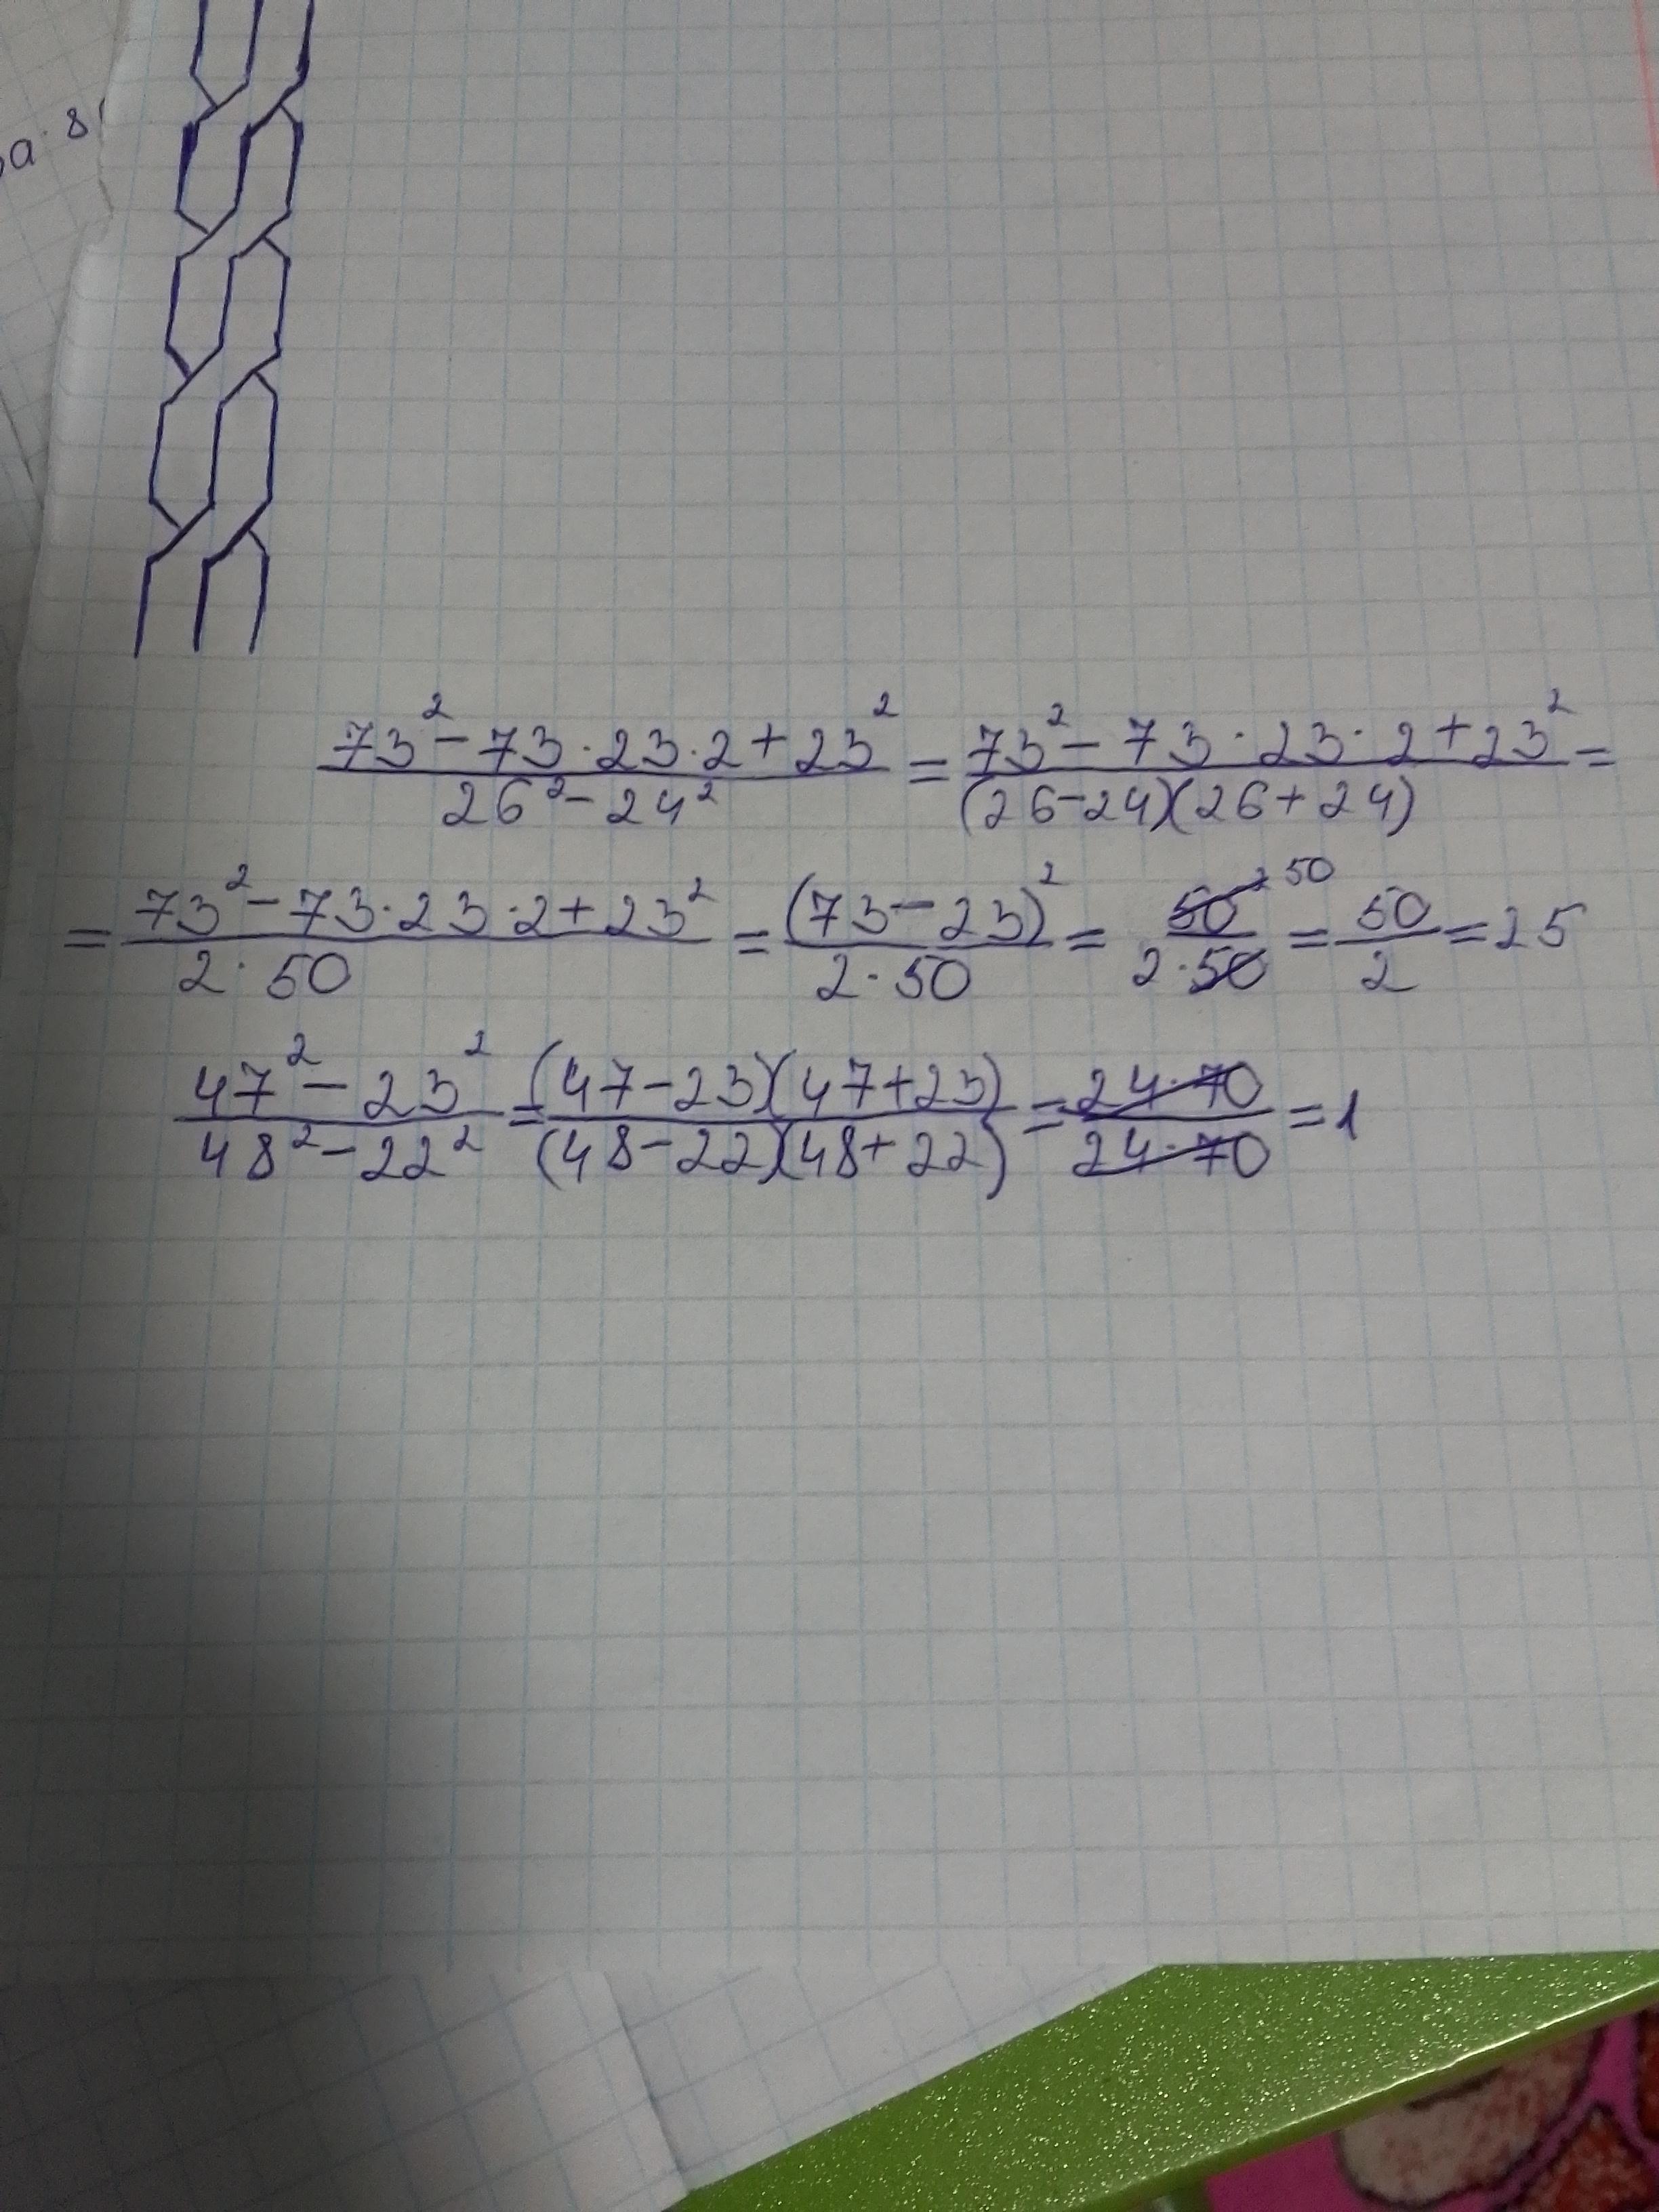 a·8
73² - 73·23·2 + 23² / 26² - 24² = 73² - 73·23·2 + 23² / (26-24)(26+24) =
= 73² - 73·23·2 + 23² / 2·50 = (73-23)² / 2·50 = 50² 50 / 2·50 = 50 / 2 = 25
47² - 23² / 48² - 22² = (47-23)(47+23) / (48-22)(48+22) = 24·70 / 24·70 = 1